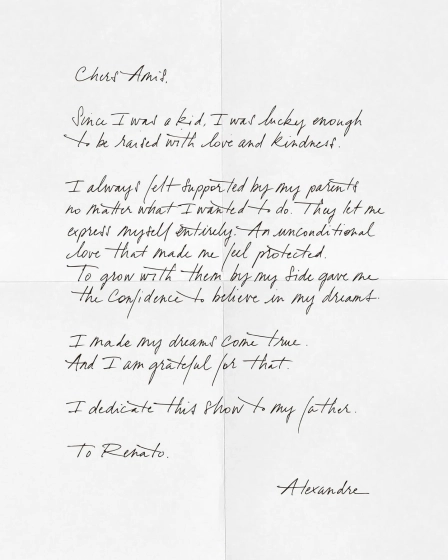 Chers Amis,
Since I was a kid, I was lucky enough
to be raised with love and kindness.
I always felt supported by my parents
no matter what I wanted to do. They let me
express myself entirely. An unconditional
love that made me feel protected.
To grow with them by my side gave me
the confidence to believe in my dreams.
I made my dreams come true.
And I am grateful for that.
I dedicate this show to my father.
To Renato.
Alexandre